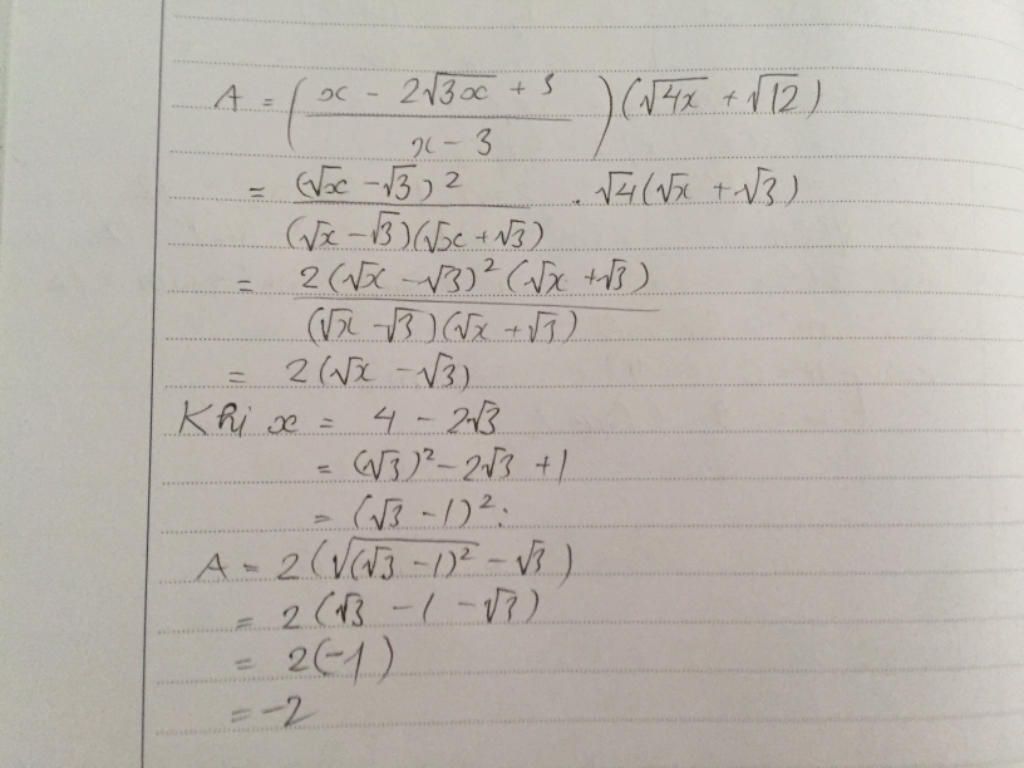 A = ( (x - 2√3x + 3) / (x - 3) ) (√4x + √12)
= (√x - √3)² / ((√x - √3)(√x + √3)) . √4(√x + √3)
= 2(√x - √3)²(√x + √3) / ((√x - √3)(√x + √3))
= 2(√x - √3)
Khi x = 4 - 2√3
= (√3)² - 2√3 + 1
= (√3 - 1)²:
A = 2(√(√3 - 1)² - √3)
= 2(√3 - 1 - √3)
= 2(-1)
= -2